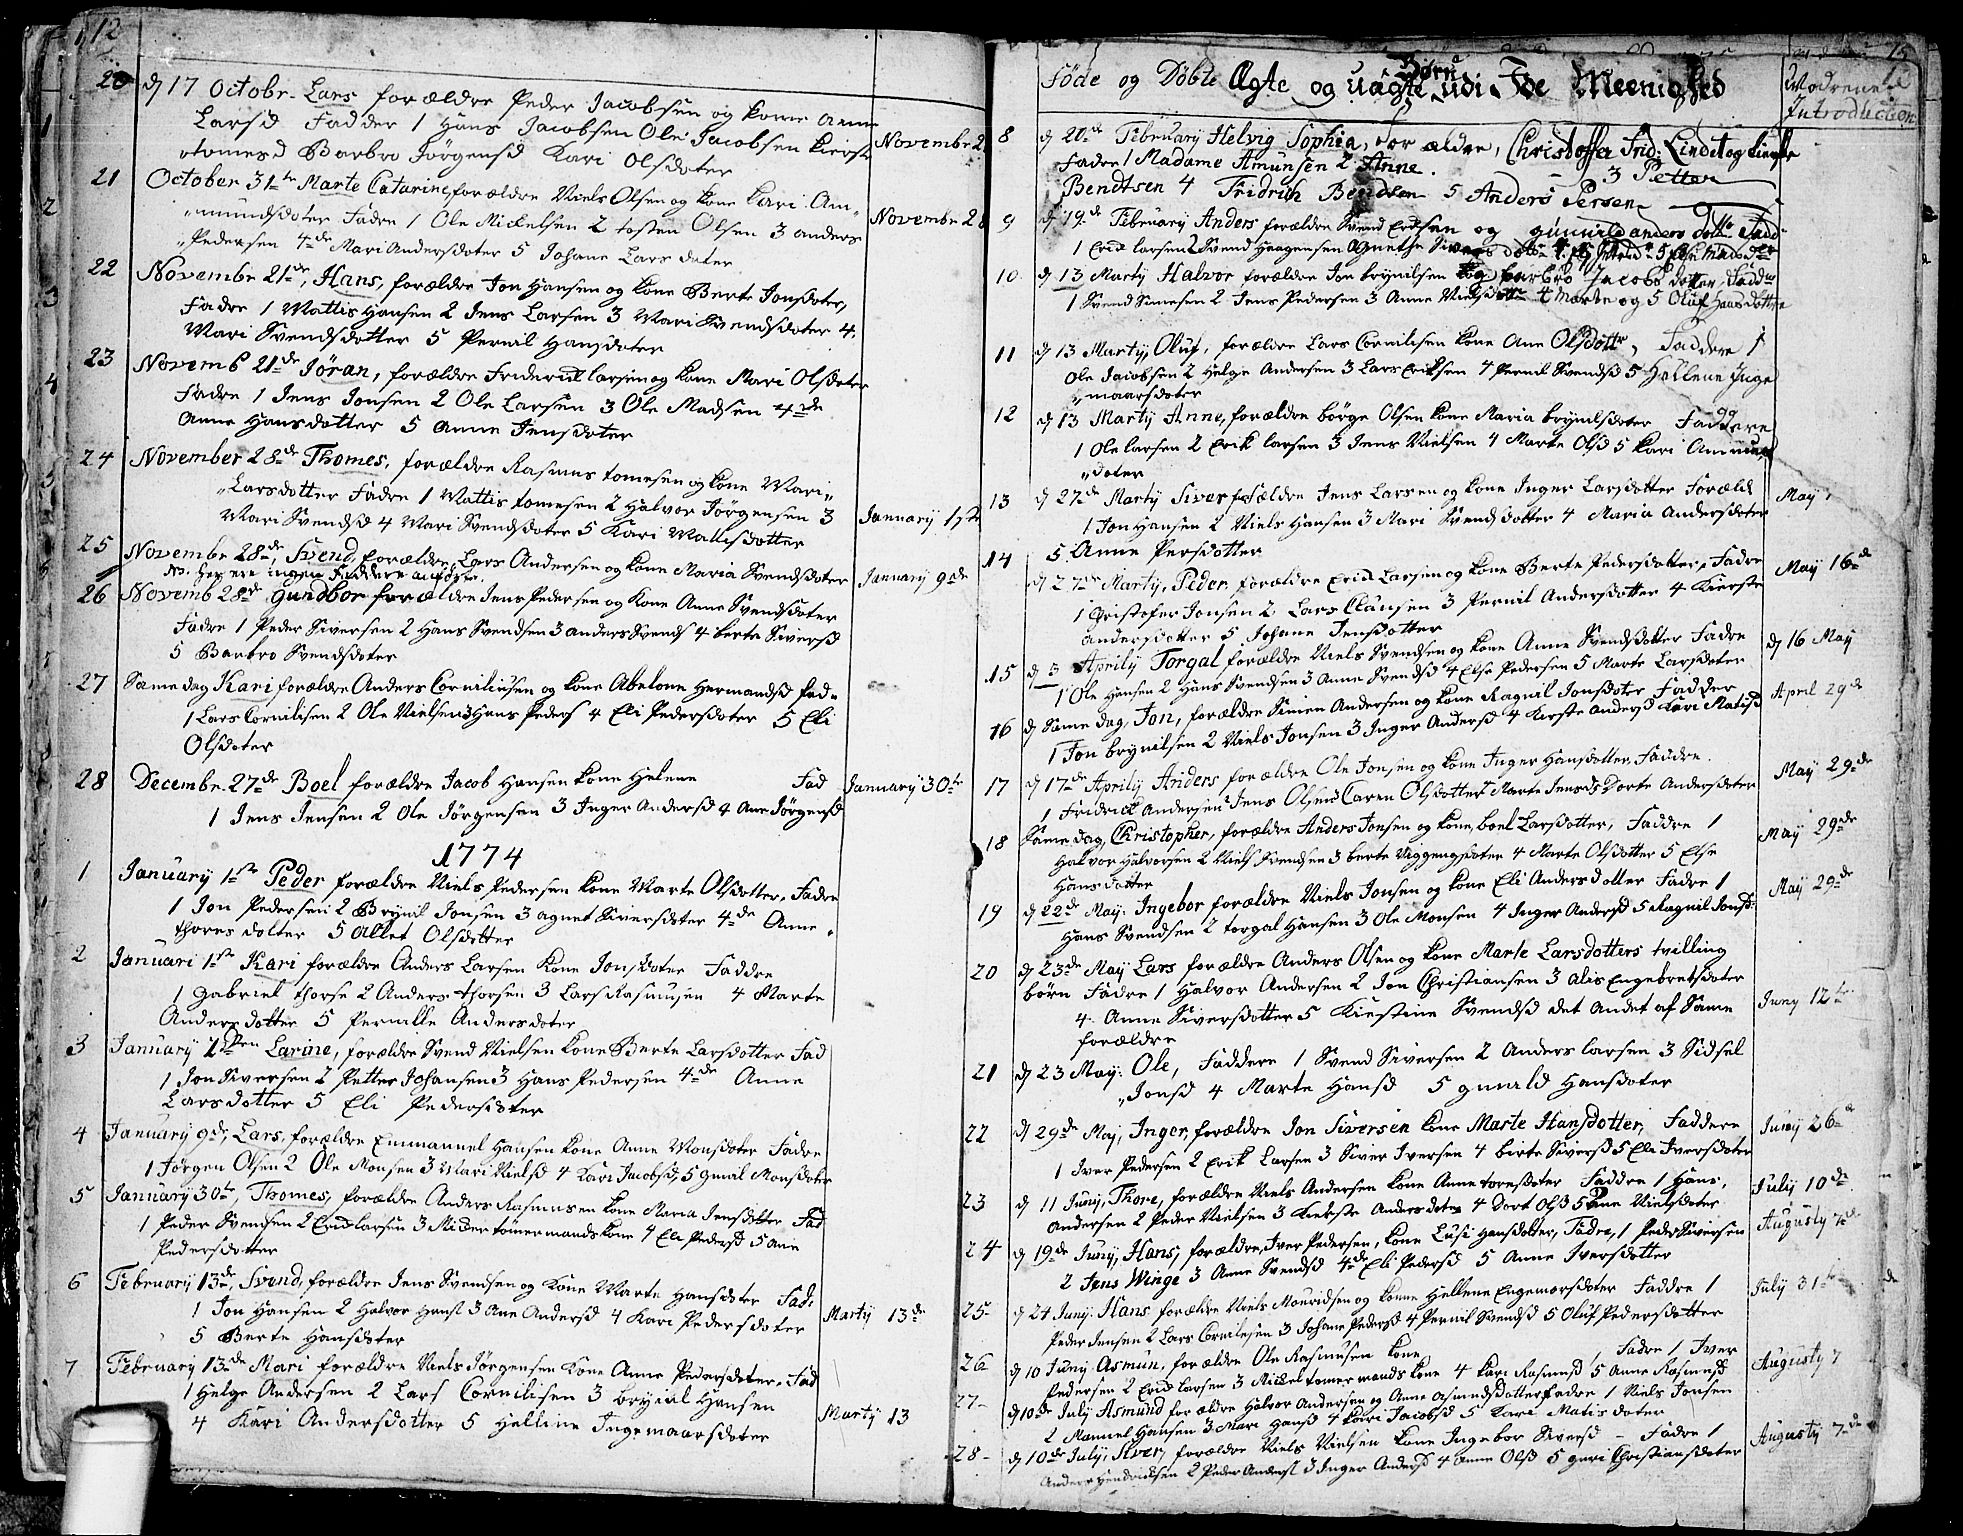 12
20 d 17 Octobr. Lars forældre Peder Jacobsen og kone Anne
Larsd Fadder 1 Hans Jacobsen Ole Jacobsen Kierst
Tomesd Barbro Jörgensd Kari Olsdoter
November 2
21 October 31te Marte Catarine, forældre Niels Olsen og kone Kari Am„
„mundsdoter Fadre 1 Ole Mickelsen 2 Tosten Olsen 3 anders
„Pedersen 4de Mari Andersdoter 5 Johane Lars doter
November 28
22 Novembr 21de, Hans, forældre Jon Hansen og kone Berte Jonsdoter,
Fadre 1 Mattis Hansen 2 Jens Larsen 3 Mari Svendsdoter 4
Mari Svendsdotter 5 Pernil Hansdoter
23 Novemb 21de Jöran, forældre Friderick larsen og kone Mari Olsdoter
Fadre 1 Jens Jonsen 2 Ole Larsen 3 Ole Madsen 4de
Anne Hansdotter 5 Anne Jensdoter
24 November 28de Thomes, forældre Rasmus tomesen og kone Mari„
„Larsdotter Fadre 1 Mattis tomesen 2 Halvor Jörgensen 3
Mari Svendsd 4 Mari Svendsdoter 5 Kari Mattisdotter
January 1ste
25 Novembr 28de, Svend, forældre Lars Andersen og kone Maria Svendsdoter
January 9de
Ns. her ere ingen Faddere anförte.
26 Novemb 28de Gundbor forældre Jens Pedersen og Kone Anne Svendsdoter
Fadre 1 Peder Siversen 2 Hans Svendsen 3 anders Svends 4 berte Siversd
5 Barbro Svendsdoter
27 Same dag Kari forældre Anders Corniliusen og kone Abelone Hermandsd fad„
1 Lars Cornilisen 2 Ole Nielsen 3 Hans Peders 4 Eli Pedersdoter 5 Eli
Olsdoter
28 Decembr. 27de Boel forældre Jacob Hansen kone Helene Fad
1 Jens Jensen 2 Ole Jörgensen 3 Inger Andersd 4 Ane Jörgensd
January 30te
1774
1 January 1ste Peder forældre Niels Pedersen kone Marte Olsdotter, Fadre
1 Jon Pedersen 2 Brynil Jonsen 3 agnet Siversdoter 4de Anne„
thores dotter 5 Allet Olsdotter
2 Januari 1ste Kari forældre Anders Larsen Kone Jonsdoter Faddre
1 Gabriel thorse 2 Anders thorsen 3 Lars Rasmusen 4 Marte
Anders dotter 5 Pernille Andersdoter
3 January Larine, forældre Svend Nielsen kone Berte Larsdotter Fad
1 Jon Siversen 2 Petter Johansen 3 Hans Pedersen 4de Anne
Larsdotter 5 Eli Pedersdoter
4 January 9de, Lars, forældre Emmanuel Hansen kone Anne Monsdoter Fadre
1 Jörgen Olsen 2 Ole Monsen 3 Mari Nielsd 4 Kari Jacobsd, 5 gunil Monsdoter
5 January 30te, Thomes, forældre Anders Rasmusen kone Maria Jensdotter Fad
1 Peder Svendsen 2 Erick larsen 3 Mickel tömermands kone 4 Eli Pedersd 5 Ane
Pedersdotter
6 February 13de, Svend, forældre Jens Svendsen og Kone Marte Hansdoter Fad.
1 Jon Hansen 2 Halvor Hansd 3 Ane Andersd 4 Kari Pedersdoter
5 Berte Hansdoter
Martij 13de
7 February 13de Mari forældre Niels Jörgensen Kone Anne Pedersdoter, Fad
1 Helge Andersen 2 Lars Cornilisen 3 brynil Hansen
4 Kari Andersdotter 5 Helline Ingemaarsdoter
Martij 13
15
Föde og Döbte Ægte og uægte Börn udi Ide Meenighed
Modrene
Introduction
8 d 20de February Helvig Sophia, Forældre, Christoffer Frid: Lindt og
Fadre 1 Madame Amunsen 2 Anne. 3 Petter
Bendtsen 4 Fridrich Bendsen 5 Anders Persen
9 d 19de February Anders forældre Svend Ericksen og gunnild anders dotter Fadd
1 Erick larsen 2 Svend Haagensen Agnethe
10 d 13 Martÿ Halvor forældre Jon brynilsen og Barbro Jacobs dotter, Faddre
1 Svend Simesen 2 Jens Pedersen 3 Anne Nielsdotter 4 Marte og 5 Oluf Hansdotter
11 d 13 Martÿ, Oluf, forældre Lars Cornilisen kone Ane Olsdotter, Faddere 1
Ole Jacobsen 2 Helge Andersen 3 Lars Ericksen 4 Pernil Svendsd 5 Hellene Inge
„maarsdoter
12 d 13 Martÿ Anne, forældre börge Olsen kone Maria brynilsdoter Faddere
1 Ole larsen 2 Erik larsen 3 Jens Nielsen 4 Marte Olsd 5 Kari Ammun
„doter
13 d 27de Martÿ Siver forældre Jens Larsen og kone Inger Larsdotter Foræld
1 Jon Hansen 2 Niels Hansen 3 Mari Svendsdotter 4 Maria Andersdoter
5 Anne Persdotter
May 1
14 d 27de Martÿ, Peder forældre Erick Larsen og kone Berte Pedersdotter, Fadre
1 Christofer Jonsen 2 Lars Clausen 3 Pernil Andersdotter 4 Kierste
andersdotter 5 Johane Jensdotter
May 16de
15 d 3 Aprilÿ Torgal forældre Niels Svendsen og kone Anne Svendsdotter Fadre
1 Ole Hansen 2 Hans Svendsen 3 Anne Svendsd 4 Else Pedersen 5 Marte Larsdoter
d 16 May
16 d Same dag, Jon, forældre Simen Andersen og kone Ragnil Jonsdoter Fadder
1 Jon brynilsen 2 Niels Jonsen 3 Inger Andersd 4 Kirste andersd Kari Matisd
April 29de
17 d 17de Aprilÿ Anders forældre Ole Jonsen og kone Inger Hansdotter, Faddre.
1 Fridrick Andersen Jens Olsen 3 Caren Olsdotter Marte Jensd 5 Dorte Andersdoter
May 29de
18 Same dag, Christopher, forældre Anders Jonsen og kone, boel Larsdotter, Faddre 1
Halvor Halvorsen 2 Niels Svendsen 3 berte Viggengsdoter 4 Marte Olsdotter 5 Else
Hansdotter
May 29de
19 d 22de May: Ingebor forældre Niels Jonsen og kone Eli Andersdotter Fadre 1
Hans Svendsen 2 torgal Hansen 3 Ole Monsen 4 Inger Andersd 5 Ragnil Jonsd
May 29de
20 d 23de May Lars forældre Anders Olsen og kone Marte Larsdotters tvilling
börn Fadre 1 Halvor Andersen 2 Jon Christiansen 3 Alis Engebretsdoter
4 Anne Siversdotter 5 Kiestine Svendsd det andet af Same
forældre
Juny 12te
21 d 23 May: Ole, Faddere 1 Svend Siversen 2 Anders larsen 3 Sidsel
„Jonsd 4 Marte Hansd 5 gunild Hansdoter
22 d 29de Maj, Inger, forældre Jon Siversen kone Marte Hansdotter, Faddere
1 Iver Pedersen 2 Erik Larsen 3 Siver Iversen 4 birte Siversd 5 Eli Iversdoter
Juny 26de
23 d 11 Junÿ, Thore, forældre Niels Andersen kone Anne toresdoter Faddre 1 Hans,
Andersen 2 Peder Nielsen 3 Kierste Andersdoter 4 Dort Olsd 5 Ane Nielsdoter
July 10de
24 d 19de Junÿ, Hans, forældre, Iver Pedersen, kone Lusi Hansdotter, Fadre, 1 Peder Siversen
2 Jens Winge 3 Anne Svendsd 4de Eli Pedersd 5 Anne Iversdotter
Augustÿ 7de
25 d 24 Junÿ: Hans forældre Niels Mouridsen og konne Hellene Engemorsdoter Faddre 1
Peder Jensen 2 Lars Cornilesen 3 Johane Pedersd 4 Pernil Svendsd 5 Oluf Pedersdotter
July 31te
26 d 10 Junÿ Asmun, forældre Ole Rasmusen kone Fadre 1 Iver
Pedersen 2 Erick larsen 3 Mickel tomermands kone 4 kari Rasmusd 5 Anne Rasmusd
Augustÿ 7
27 d 10de Julÿ Asmund forældre Halvor Andersen og Anne Asmundsdotter Fadre 1 Niels Jonsen
2 Manuel Hansen 3 Mari Hansd 4 Kari Jacobsd 5 Kari Matisdoter
28 d 10de Julÿ, Siver, forældre Niels Nielsen kone Ingebor Siversd Fadre 1
Anders Hendricksen 2 Peder Andersd 3 Inger Andersd 4 Anne Olsd 5 guri Christiansdoter
Augustÿ 7de